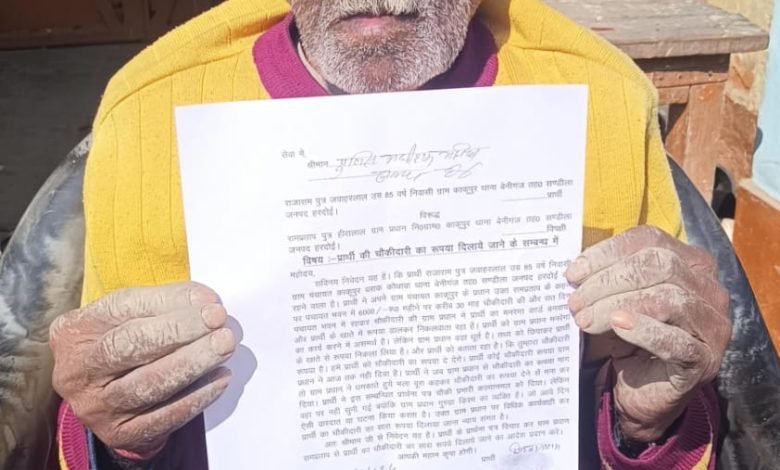 सेवा में,
श्रीमान
राजाराम पुत्र जवाहरलाल उम्र 85 वर्ष निवासी ग्राम काकूपुर थाना बेनीगंज तह0 सण्डीला
जनपद हरदोई। प्रार्थी
विरूद्ध
रामप्रताप पुत्र हीरालाल ग्राम प्रधान नि0ग्रा0 काकूपुर थाना बेनीगंज तह0 सण्डीला
जनपद हरदोई। विपक्षी
विषय :–प्रार्थी की चौकीदारी का रूपया दिलाये जाने के सम्बन्ध में
महोदय,
सविनय निवेदन यह है। कि प्रार्थी राजाराम पुत्र जवाहरलाल उम्र 85 वर्ष निवासी
ग्राम पंचायत काकूपुर ब्लाक कोथावा थाना बेनीगंज तह0 सण्डीला जनपद हरदोई का
रहने वाला है। प्रार्थी ने अपने ग्राम पंचायत काकूपुर के प्रधान उक्त रामप्रताप के कहने
पर पंचायत भवन में 6000/–रू0 महीने पर करीब 30 माह चौकीदारी की और रात दिन
पंचायत भवन में रहकर चौकीदारी की ग्राम प्रधान ने प्रार्थी का मनरेगा कार्ड बनवाकर
प्रार्थी के खाते में रूपया डालकर निकलवाता रहा है। प्रार्थी को ग्राम प्रधान मनरेगा
का कार्य करने में असमर्थ है। लेकिन ग्राम प्रधान बड़ा धूर्त है। तथ्य को छिपाकर प्रार्थी
के खाते से रूपया निकला लिया है। और प्रार्थी को बताता रहा है। कि तुम्हारा चौकीदारी
रूपया है। हम प्रार्थी को चौकीदारी का रूपया दे देगे। प्रार्थी कोई चौकीदारी रूपया ग्राम
प्रधान ने आज तक नही दिया है। प्रार्थी ने जब ग्राम प्रधान से चौकीदारी का रूपया मांगा
तो ग्राम प्रधान ने धमकाते हुये भला बुरा कहकर चौकीदारी का रूपया देने से मना कर
दिया। प्रार्थी ने इस सम्बन्धित प्रार्थना पत्र चौकी प्रभारी को दिया। लेकिन
वहा पर नही सुनी गई क्योंकि ग्राम प्रधान गुण्डा किस्म का व्यक्ति है। जो आये दिन
ऐसी वारदात या घटना किया करता है। उक्त ग्राम प्रधान पर विधिक कार्यवाही कर
प्रार्थी का चौकीदारी का सारा रूपया दिलाया जाना न्याय संगत है।
अतः श्रीमान जी से निवेदन यह है। प्रार्थी के प्रार्थना पत्र विचार कर ग्राम प्रधान
रामप्रताप से प्रार्थी का चौकीदारी का सारा रूपये दिलाये जाने का आदेश प्रदान करे।
आपकी महान कृपा होगी।
प्रार्थी